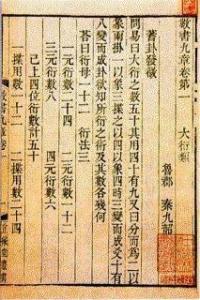 數書九章卷第一　大衍類
魯郡　秦九韶
蓍卦發微
問易曰大衍之數五十其用四十有九又曰分而為二以
象兩掛一以象三揲之以四以象四時三變而成爻十有
八變而成卦欲知所衍之術及其數各幾何
答曰衍母一十二　衍法三
一元衍數二十四　二元衍數一十二
三元衍數八　四元衍數六
已上四位衍數計五十
一揲用數一十二　二揲用數二十四
數書九章卷一　一　宜稼堂叢書